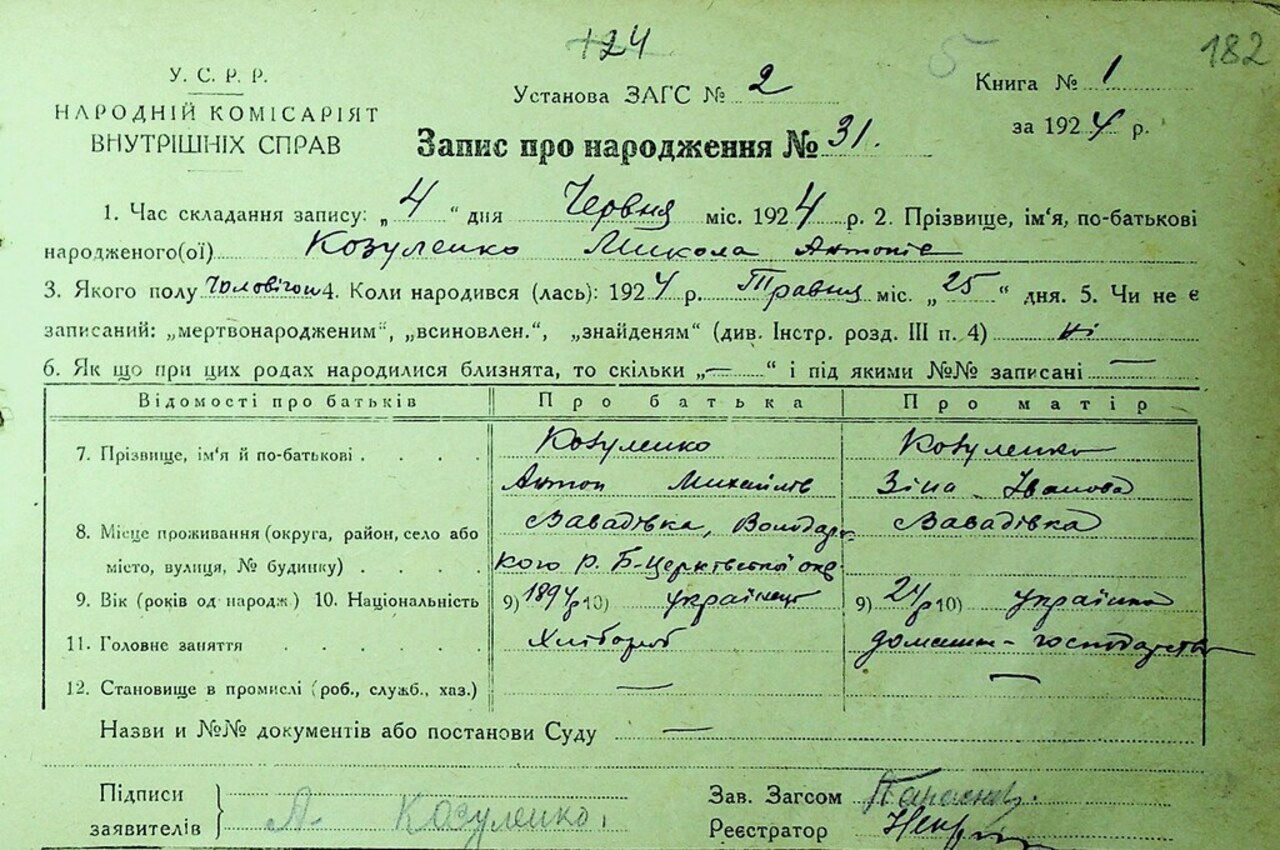 124 5 182
У. С. Р. Р.
НАРОДНІЙ КОМІСАРІЯТ
ВНУТРІШНІХ СПРАВ
Установа ЗАГС № 2
Книга № 1
за 1924 р.
Запис про народження № 31.
1. Час складання запису: „ 4 “ дня Червня міс. 1924 р. 2. Прізвище, ім‘я, по-батькові
народженого(ої) Козуленко Микола Антонів
3. Якого полу Чоловічого 4. Коли народився (лась): 1924 р. Травня міс. „ 25 “ дня. 5. Чи не є
записаний: „мертвонародженим“, „всиновлен.“, „знайденям“ (див. Інстр. розд. III п. 4) ні
6. Як що при цих родах народилися близнята, то скільки „ — “ і під якими №№ записані —
Відомості про батьків Про батька Про матір
7. Прізвище, ім‘я й по-батькові . . . . Козуленко Козуленко
Антон Михайлів Зіна Іванова
8. Місце проживання (округа, район, село або Завадівка, Володарс- Завадівка
місто, вулиця, № будинку) . . . . кого р. Б-Церківської окр.
9. Вік (років од народж.) 10. Національність 9) 1894 р 10) українець 9) 24 р 10) українка
11. Головне заняття . . . . . . Хлібороб домашн- господарство
12. Становище в промислі (роб., служб., хаз.) — —
Назви и №№ документів або постанови Суду —
Підписи
заявителів } А. Козуленко.
Зав. Загсом
Реєстратор